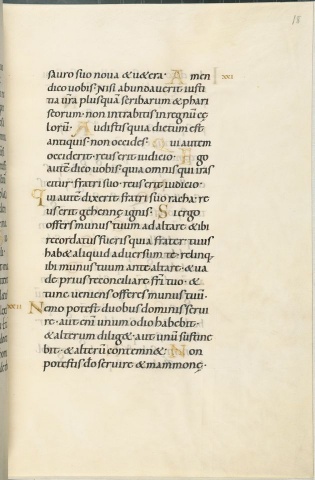 18
sauro suo noua & uetera· Amen xxi
dico uobis· Nisi abundauerit iusti
tia ur̄a plusquā scribarum & phari
seorum· non intrabitis in regnū cę
lorū· Audistis quia dictum est
antiquis· non occides· Qui autem
occiderit· reus erit iudicio· Ego
autē dico uobis· quia omnis qui iras
citur fratri suo· reus erit iudicio·
Qui autē dixerit fratri suo racha· re
us erit gehennę ignis· Si ergo
offers munus tuum ad altare· & ibi
recordatus fueris quia frater tuus
hab& aliquid aduersum te· relinq·
ibi munus tuum ante altare· & ua
de prius reconciliare frī tuo· &
tunc ueniens offeres munus tuū·
xxii Nemo potest duobus dominis serui
re· aut enī unum odio habebit·
& alterum dilig&· aut unū sustine
bit· & alterū contemn&· Non
potestis dō seruire & mammonę·